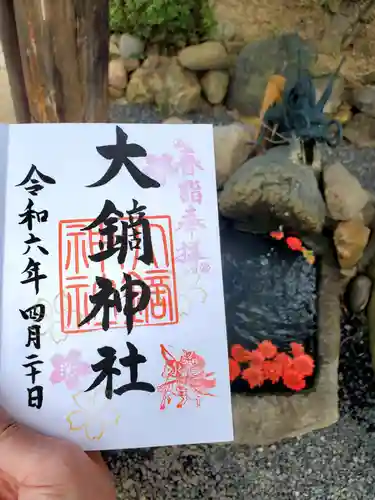 春詣奉拝
大鏑神社
令和六年四月二十日